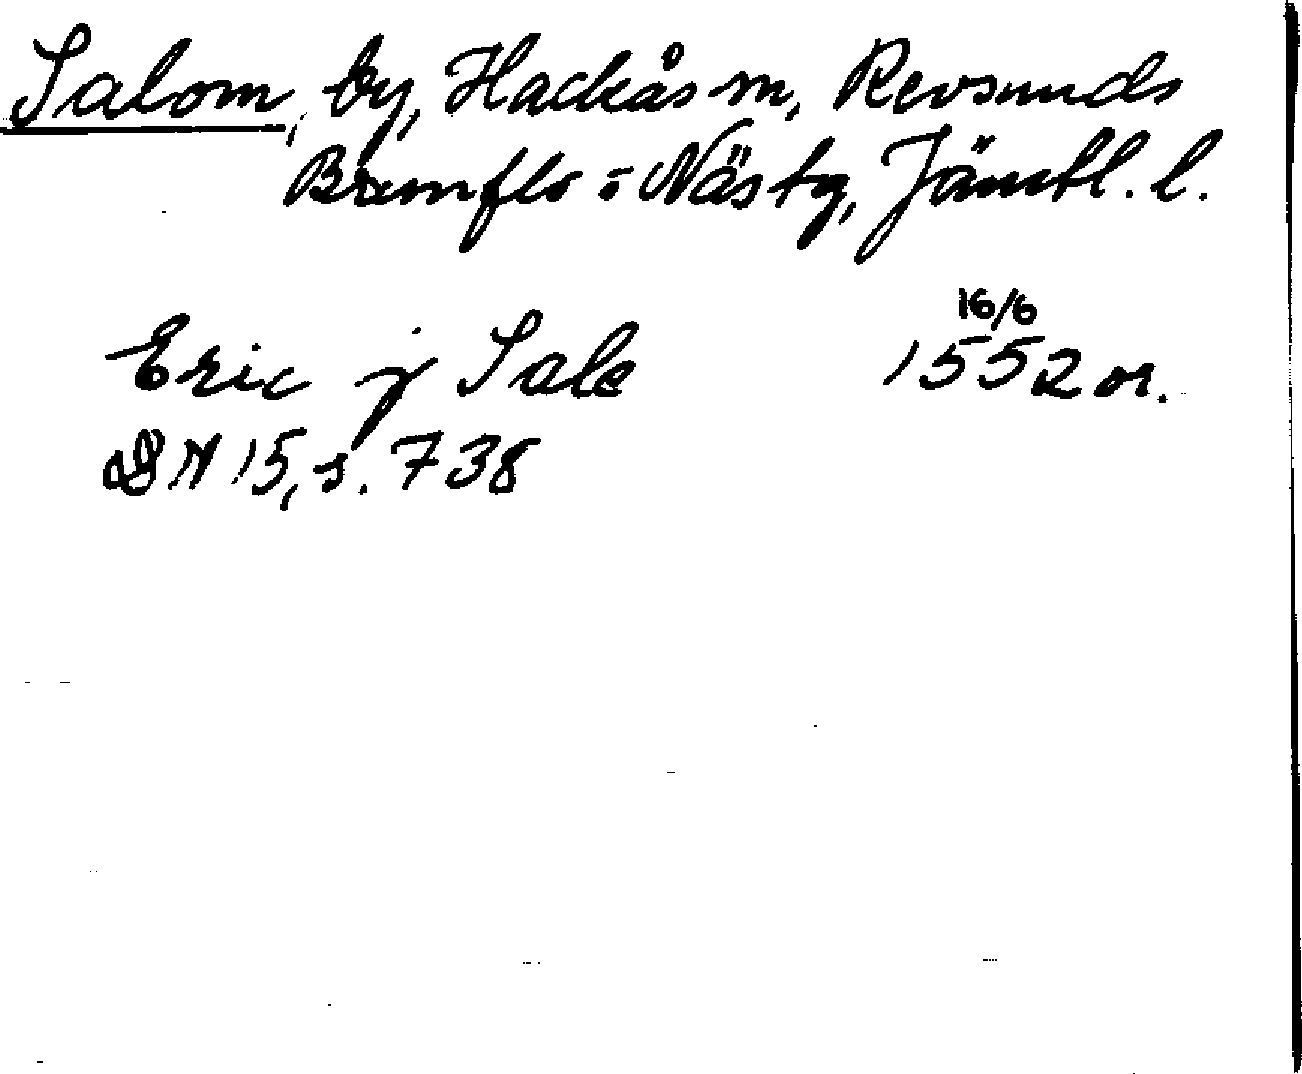 Salom, by, Hackås sn, Revsunds
Brunflo o Näs tg, Jämtl. l.
16/6
Eric j Sale 1552 or.
DN 15, s. 738